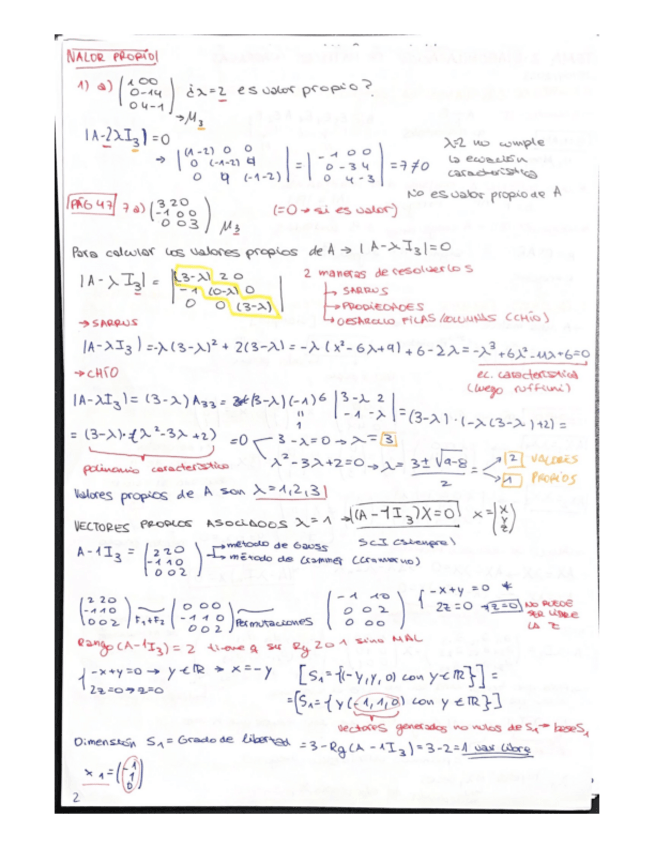 VALOR PROPIO
1) a) (1 0 0 / 0 -1 4 / 0 4 -1) → M3 ¿λ=2 es valor propio?
|A-2λI3|=0
→ |(1-2) 0 0 / 0 (-1-2) 4 / 0 4 (-1-2)| = |-1 0 0 / 0 -3 4 / 0 4 -3| = 7≠0
λ=2 no cumple la ecuación característica
No es valor propio de A
PÁG 47 7a) (3 2 0 / -1 0 0 / 0 0 3) M3 (=0 → si es valor)
Para calcular los valores propios de A → |A-λI3|=0
|A-λI3| = |(3-λ) 2 0 / -1 (0-λ) 0 / 0 0 (3-λ)|
2 maneras de resolverlos
→ SARRUS
→ PROPIEDADES
→ DESAROLLO FILAS/COLUMNAS (CHÍO)
→ SARRUS
|A-λI3| = -λ(3-λ)² + 2(3-λ) = -λ(x²-6λ+9) + 6-2λ = -λ³+6λ²-11λ+6=0
ec. característica
(luego ruffini)
→ CHÍO
|A-λI3| = (3-λ) A33 = (3-λ)(-1)6 |3-λ 2 / -1 -λ| = (3-λ)·(-λ(3-λ)+2) =
1
= (3-λ)·(λ²-3λ+2) =0
3-λ=0 → λ=3
λ²-3λ+2=0 → λ= 3±√9-8 / 2 = 2 1 VALORES PROPIOS
polinomio característico
Valores propios de A son λ=1,2,3
VECTORES PROPIOS ASOCIADOS λ=1 → (A-1I3)X=0 X=(x y z)
SCI (siempre)
A-1I3 = (2 2 0 / -1 -1 0 / 0 0 2)
→ método de Gauss
→ método de Crammer
(2 2 0 / -1 -1 0 / 0 0 2) F1+F2 (0 0 0 / -1 -1 0 / 0 0 2) Permutaciones (-1 -1 0 / 0 0 2 / 0 0 0)
-x+y=0 *
2z=0 → z=0 NO PUEDE SER LIBRE LA Z
Rango(A-1I3)=2 tiene q ser Rg 2 o 1 sino MAL
-x+y=0 → y∈ℝ → x=-y
2z=0 → z=0
[S1={(-y,y,0) con y∈ℝ}] =
=[S1={y(-1,1,0) con y∈ℝ}]
vectores generados no nulos de S1 → base S1
Dimensión S1 = Grado de libertad = 3-Rg(A-1I3) = 3-2 = 1 var libre
x1=(-1 1 0)
2